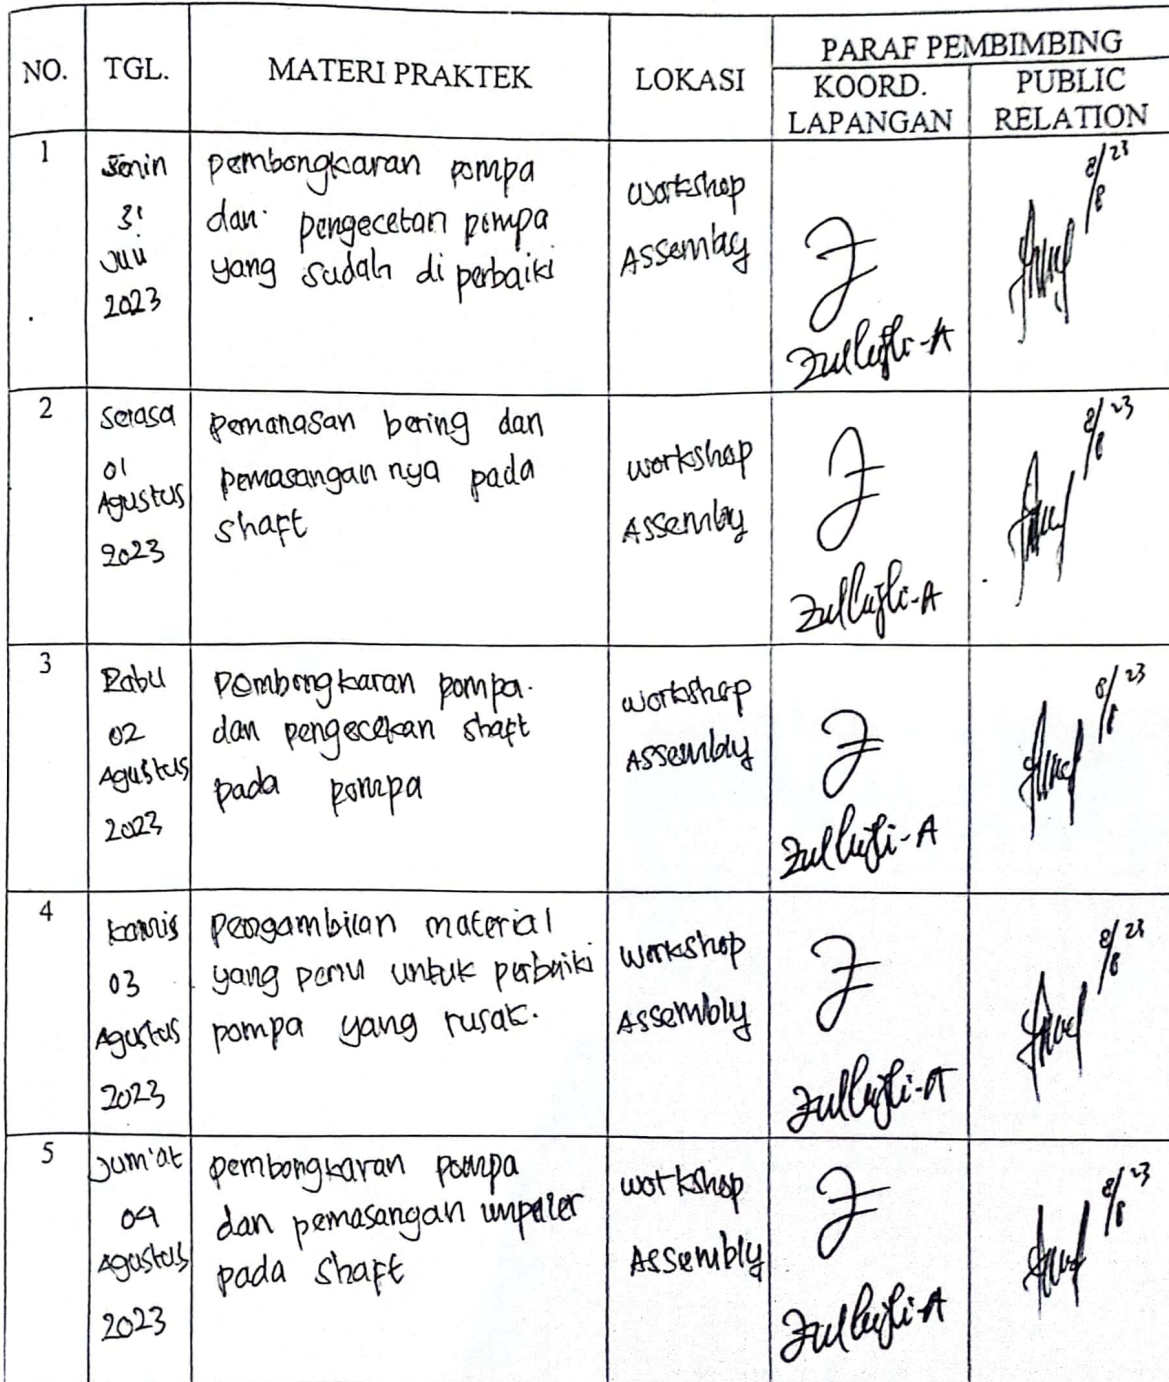 NO. TGL. MATERI PRAKTEK LOKASI PARAF PEMBIMBING
KOORD. LAPANGAN PUBLIC RELATION
1
Senin
31
Juli
2023
pembongkaran pompa
dan pengecetan pompa
yang sudah di perbaiki
workshop
Assembly
Zulkifli-A
8/8 23
2
Selasa
01
Agustus
2023
pemanasan bering dan
pemasangan nya pada
shaft
workshop
Assembly
Zulkifli-A
8/8 23
3
Rabu
02
Agustus
2023
Pembongkaran pompa.
dan pengecekan shaft
pada pompa
workshop
Assembly
Zulkifli-A
8/8 23
4
kamis
03
Agustus
2023
pengambilan material
yang perlu untuk perbaiki
pompa yang rusak.
workshop
Assembly
Zulkifli-A
8/8 23
5
Jum'at
04
Agustus
2023
pembongkaran pompa
dan pemasangan impeler
pada shaft
workshop
Assembly
Zulkifli-A
8/8 23